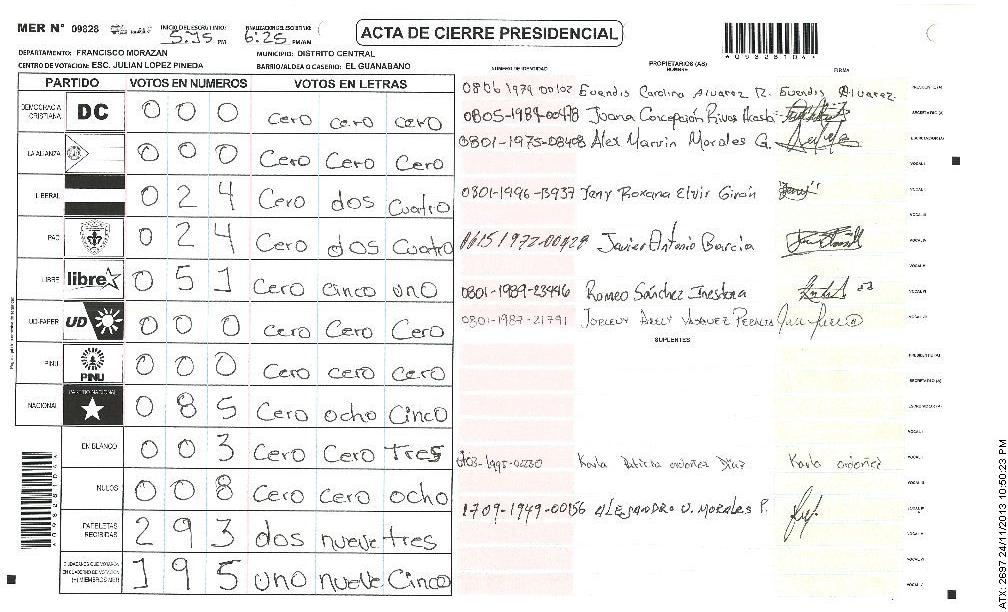 MER N° 09828 INICIO DEL ESCRUTINIO: 5:15 PM FINALIZACION DEL ESCRUTINIO: 6:25 PM/AM
ACTA DE CIERRE PRESIDENCIAL
DEPARTAMENTO: FRANCISCO MORAZAN MUNICIPIO: DISTRITO CENTRAL
CENTRO DE VOTACION: ESC. JULIAN LOPEZ PINEDA BARRIO/ALDEA O CASERIO: EL GUANABANO
PARTIDO VOTOS EN NUMEROS VOTOS EN LETRAS
NUMERO DE IDENTIDAD PROPIETARIOS (AS) NOMBRE FIRMA
DEMOCRACIA CRISTIANA DC 0 0 0 cero cero cero
LA ALIANZA 0 0 0 Cero Cero Cero
LIBERAL 0 2 4 Cero dos cuatro
PAC 0 2 4 Cero dos Cuatro
LIBRE libre 0 5 1 Cero cinco uno
UD-FAPER UD 0 0 0 cero Cero Cero
PINU PINU 0 0 0 cero cero cero
NACIONAL PARTIDO NACIONAL 0 8 5 Cero ocho Cinco
EN BLANCO 0 0 3 Cero Cero Tres
NULOS 0 0 8 Cero cero ocho
PAPELETAS RECIBIDAS 2 9 3 dos nueve tres
CIUDADANOS QUE VOTARON EN CUADERNO DE VOTACION (+) MIEMBROS MER 1 9 5 uno nueve Cinco
0806 1979 00102 Euendis Carolina Alvarez R. Euendis Alvarez PRESIDENTE (A)
0805-1989-00478 Juana Concepción Rivas Acosta SECRETARIO (A)
0801-1975-08408 Alex Marvin Morales G. ESCRUTADOR (A)
VOCAL I
0801-1996-13937 Jeny Roxana Elvir Girón VOCAL II
VOCAL III
0615 1972-00429 Javier Antonio Garcia VOCAL IV
VOCAL V
0801-1989-23446 Romeo Sánchez Inestroza VOCAL VI
0801-1987-21791 VASQUEZ PERALTA
SUPLENTES
PRESIDENTE (A)
SECRETARIO (A)
ESCRUTADOR (A)
VOCAL I
Karla Patricia ordoñez Diaz Karla ordoñez
1709-1949-00156 ALEJANDRO U. MORALES P.
A09828104
ATX: 2697 24/11/2013 10:50:23 PM